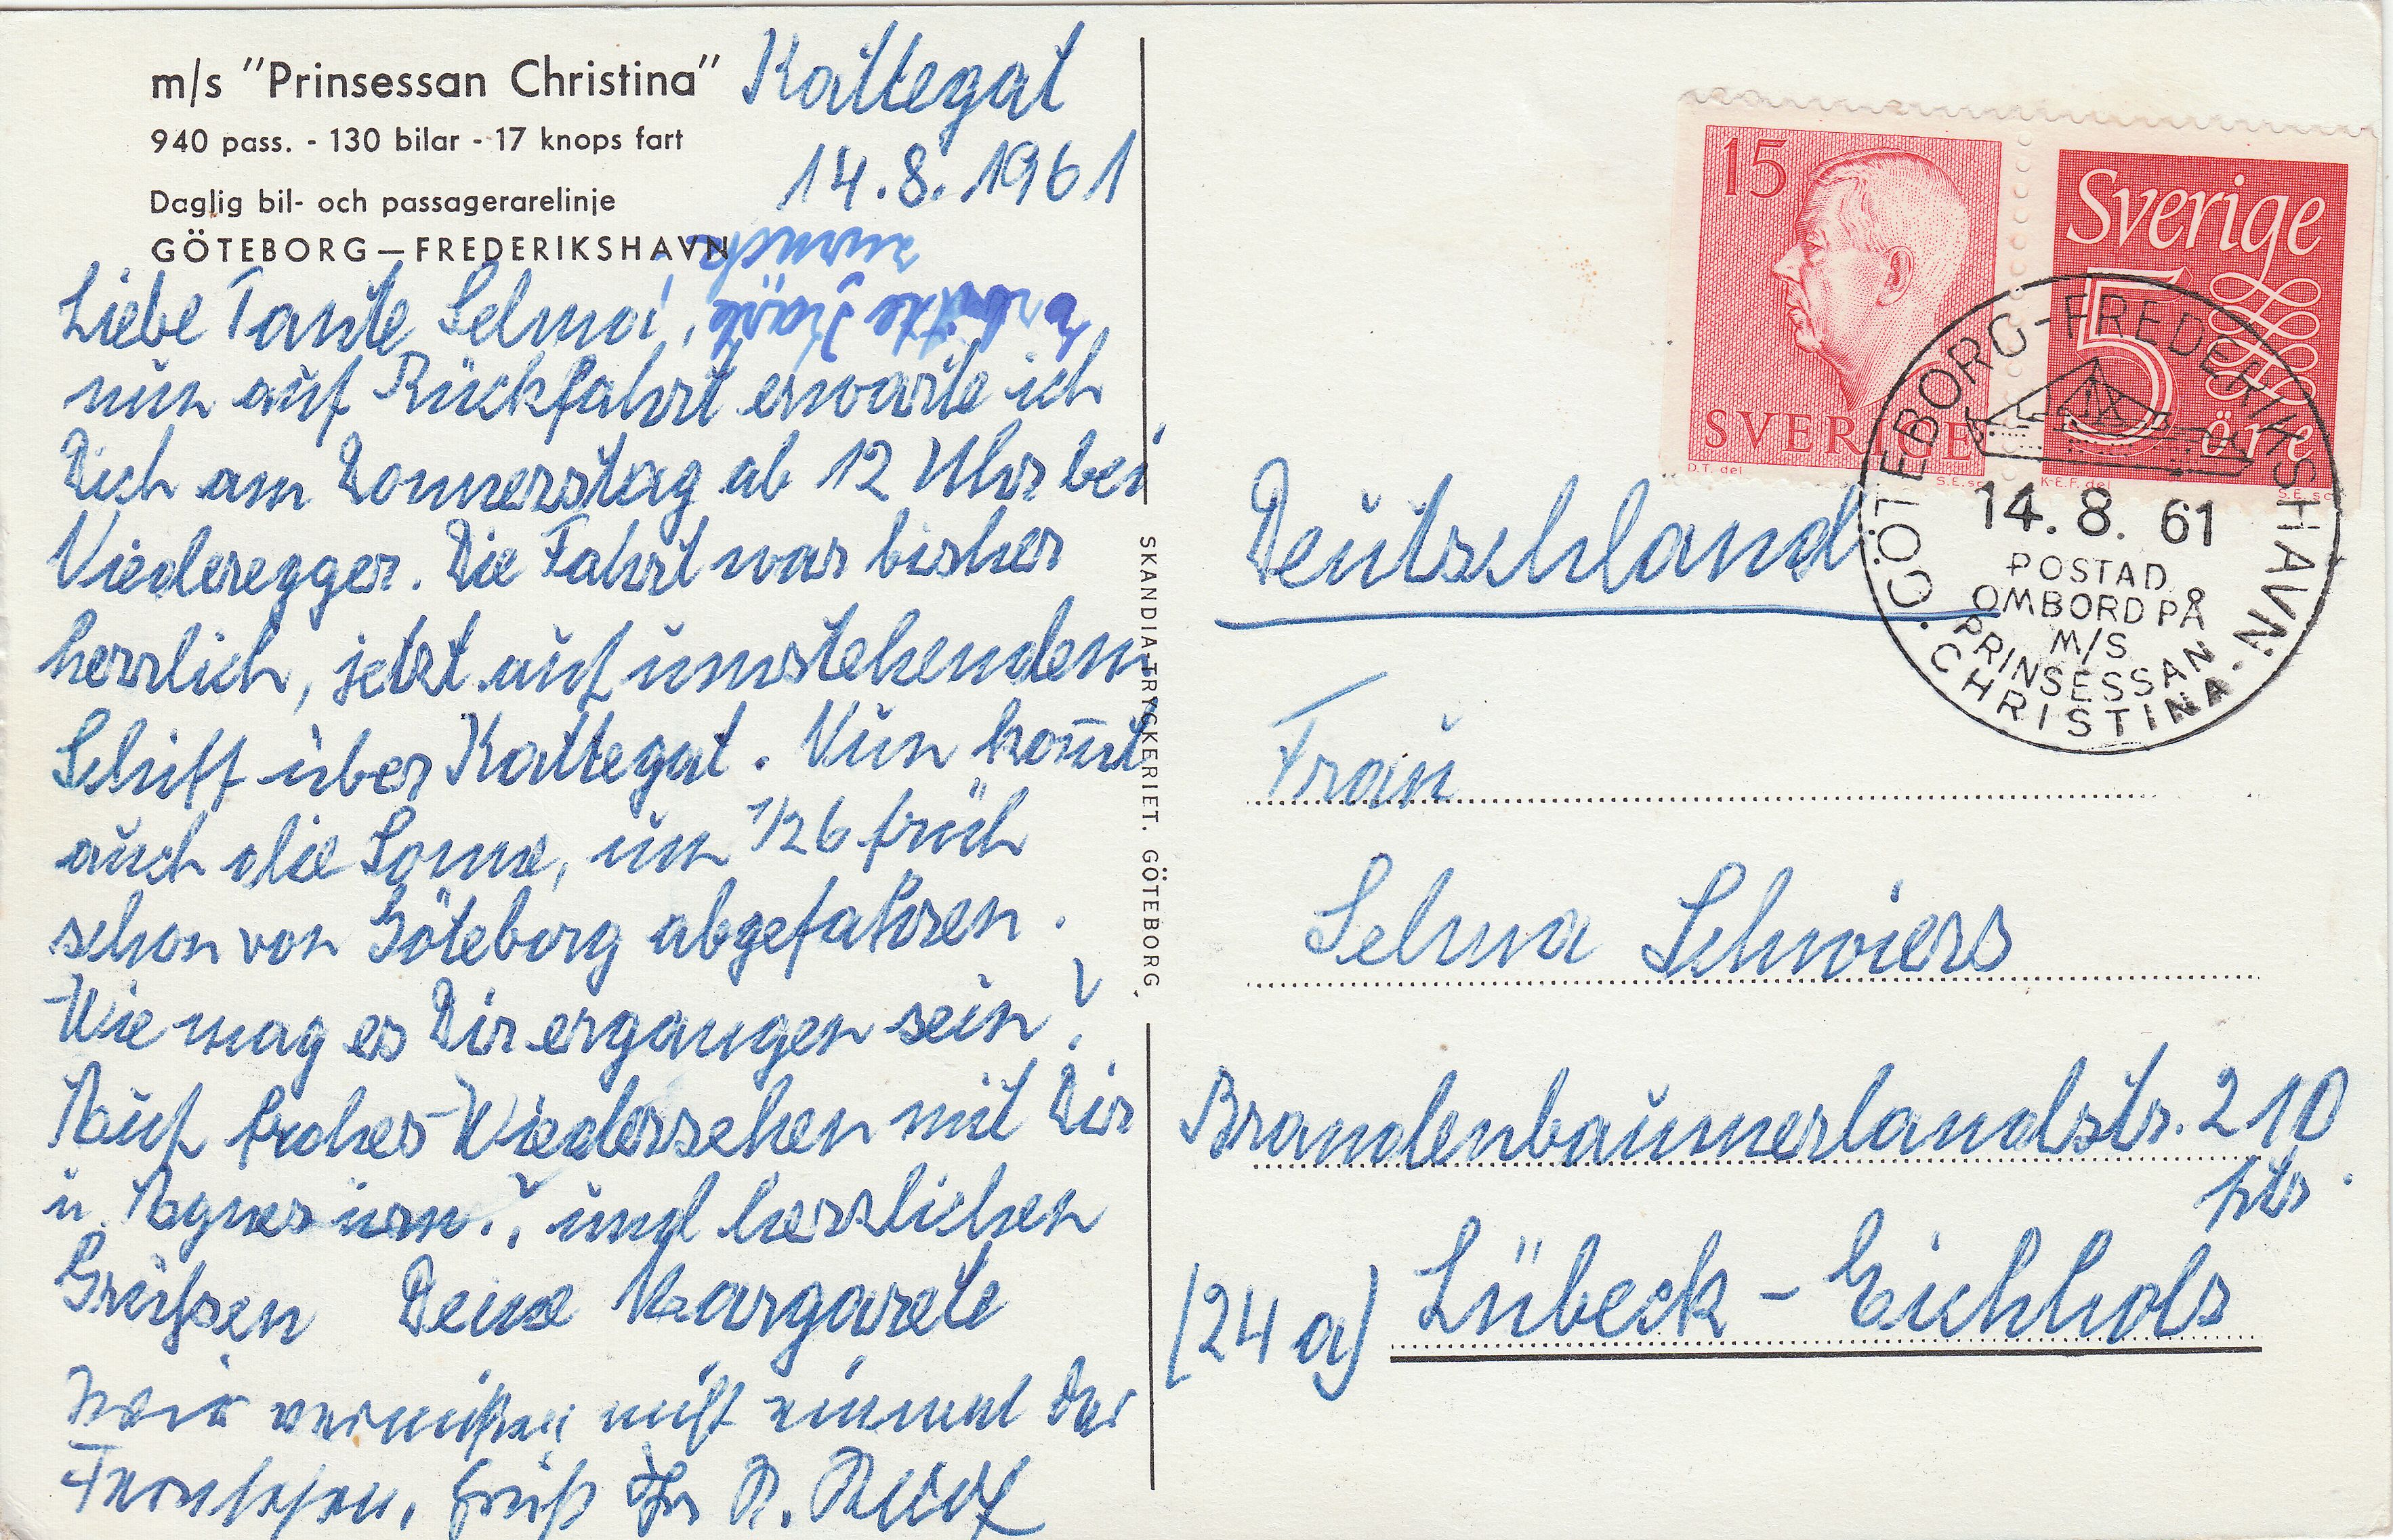 m/s "Prinsessan Christina"
940 pass. - 130 bilar - 17 knops fart
Daglig bil- och passagerarelinje
GÖTEBORG—FREDERIKSHAVN
Kattegat
14.8.1961
Liebe Tante Selma!,
nun auf Rückfahrt erwarte ich
Dich am Donnerstag ab 12 Uhr bei
Niederegger. Die Fahrt war bisher
herrlich, jetzt auf umstehendem
Schiff über Kattegat. Nun kom̄t
auch die Sonne, um 1/2 6 früh
schon von Göteborg abgefahren.
Wie mag es Dir ergangen sein?
Auf frohes Wiedersehen mit Dir
u. Agnes und herzlichen
Grüßen Deine Margarete
Wir vermißen nicht einmal das
Fernsehen, Gruß Ihr R.
SKANDIA-TRYCKERIET. GÖTEBORG.
15
SVERIGE
D.T. del
S.E. sc
Sverige
5
öre
K-E.F. del
S.E. sc
GÖTEBORG-FREDERIKSHAVN.
14. 8. 61
POSTAD
OMBORD PÅ
M/S
PRINSESSAN
CHRISTINA
Deutschland
Frau
Selma Schwiers
Brandenbaumerlandstr. 210
ptr.
(24a) Lübeck - Eichholz